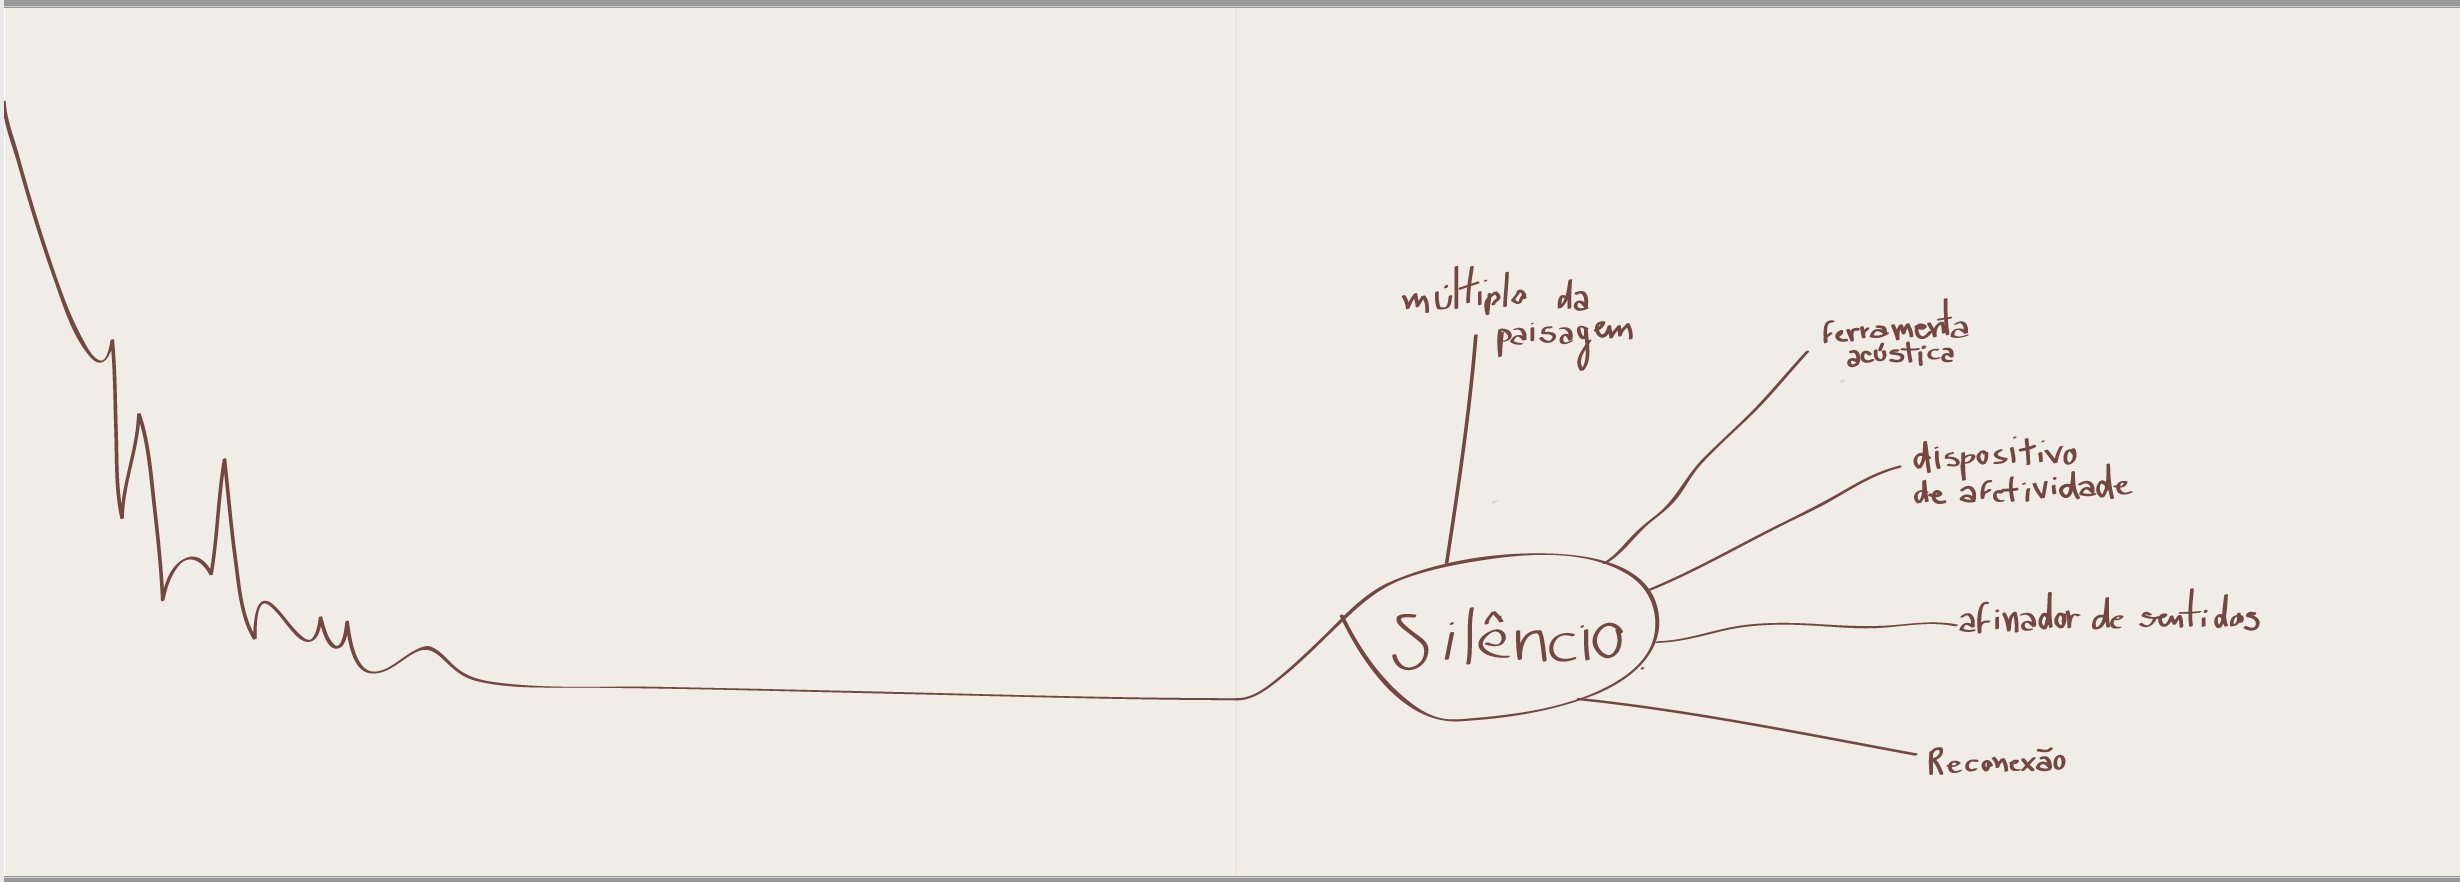 múltiplo da
paisagem
ferramenta
acústica
dispositivo
de afetividade
Silêncio
afinador de sentidos
Reconexão